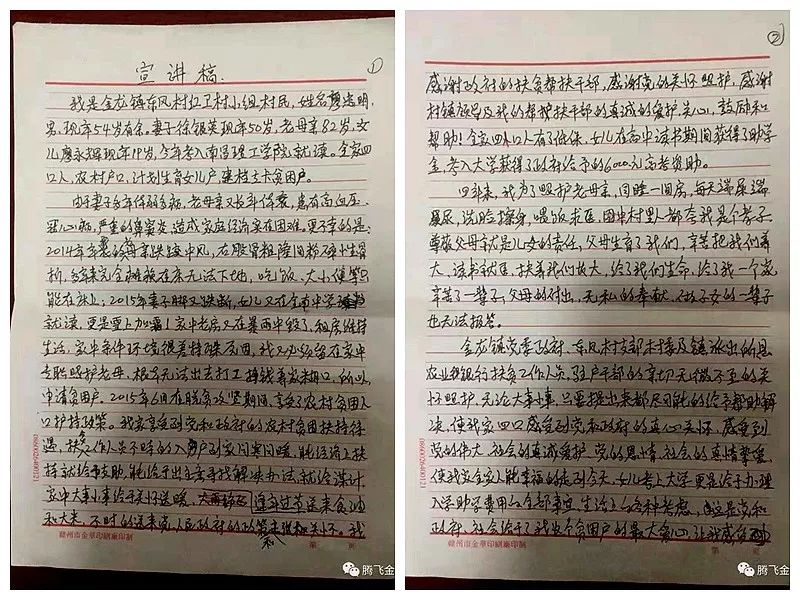 ①
宣讲稿
我是金龙镇东风村红卫村小组村民，姓名廖
男，现年54岁有余。妻子徐银英现年50岁，老母亲82岁，女
儿廖永辉现年19岁，今年考入南昌理工学院就读。全家四
口人，农村户口，计划生育女儿户，建档立卡贫困户。
由于妻子多年体弱多病，老母亲又长年体衰，患有高血压、
冠心病，严重的鼻窦炎，造成家庭经济实在困难。更不幸的是：
2014年年老的母亲跌跤中风，右股骨粗隆间粉碎性骨
折，完全瘫痪在床无法下地，吃饭、大小便等只
能在床上；2015年妻子脚又跌断，女儿又在全南中学
就读，更是雪上加霜！家中老房又在暴雨中毁了，租房维持
生活，家中条件环境很差特殊原因，我又必须留在家中
专职照护老母，根本无法出去打工挣钱养家糊口，所以
申请贫困户。2015年6月在脱贫攻坚期间，享受了农村贫困人
口护持政策。我家享受到党和政府的农村贫困扶持待
遇，扶贫工作人员不时的入户到家问寒问暖，能经济上扶
持就给予支助，能给予出主意寻找解决办法就给谋计
家中大事小事给予关怀送暖，逢年过节送来食油
和大米，不时的送来党、人民政府的政策和关怀。我
赣州市金华印刷厂印制
第 页
腾飞金
②
感谢政府的扶贫帮扶干部，感谢党的关怀照护，感谢
村镇领导及我的帮扶干部的真诚的爱护关心，鼓励和
帮助！全家四口人有了低保，女儿在高中读书期间获得了助学
金，考入大学获得了政府给予的6000元高考资助。
四年来，我为了照护老母亲，同睡一间房，每天端屎端
尿，洗脸擦身，喂饭来医，团中村里人都夸我是个孝子
尊敬父母就是儿女的责任，父母生育了我们，辛苦把我们养
大，读书就医，扶养我们成大，给了我们生命，给了我一个家
辛苦了一辈子，父母的付出，无私的奉献，做子女的一辈子
也无法报答。
金龙镇党委政府、东风村支部村委及镇派出所、县
农业银行扶贫工作人员、驻户干部的亲切无微不至的关
怀照护，无论大事小事，只要提出来都尽可能的给予帮助解
决，使我家四口感受到党和政府的真心关怀，感受到
党的伟大，社会的真诚爱护，党的恩情，社会的真情挚爱，
使我家全家人能幸福的走到今天，女儿考上大学更是给予办理
入学助学费用的全部事宜，生活上各种考虑，这是党和
政府、社会给予了我这个贫困户的最大爱心，让我感
赣州市金华印刷厂印制
第 页
腾飞金